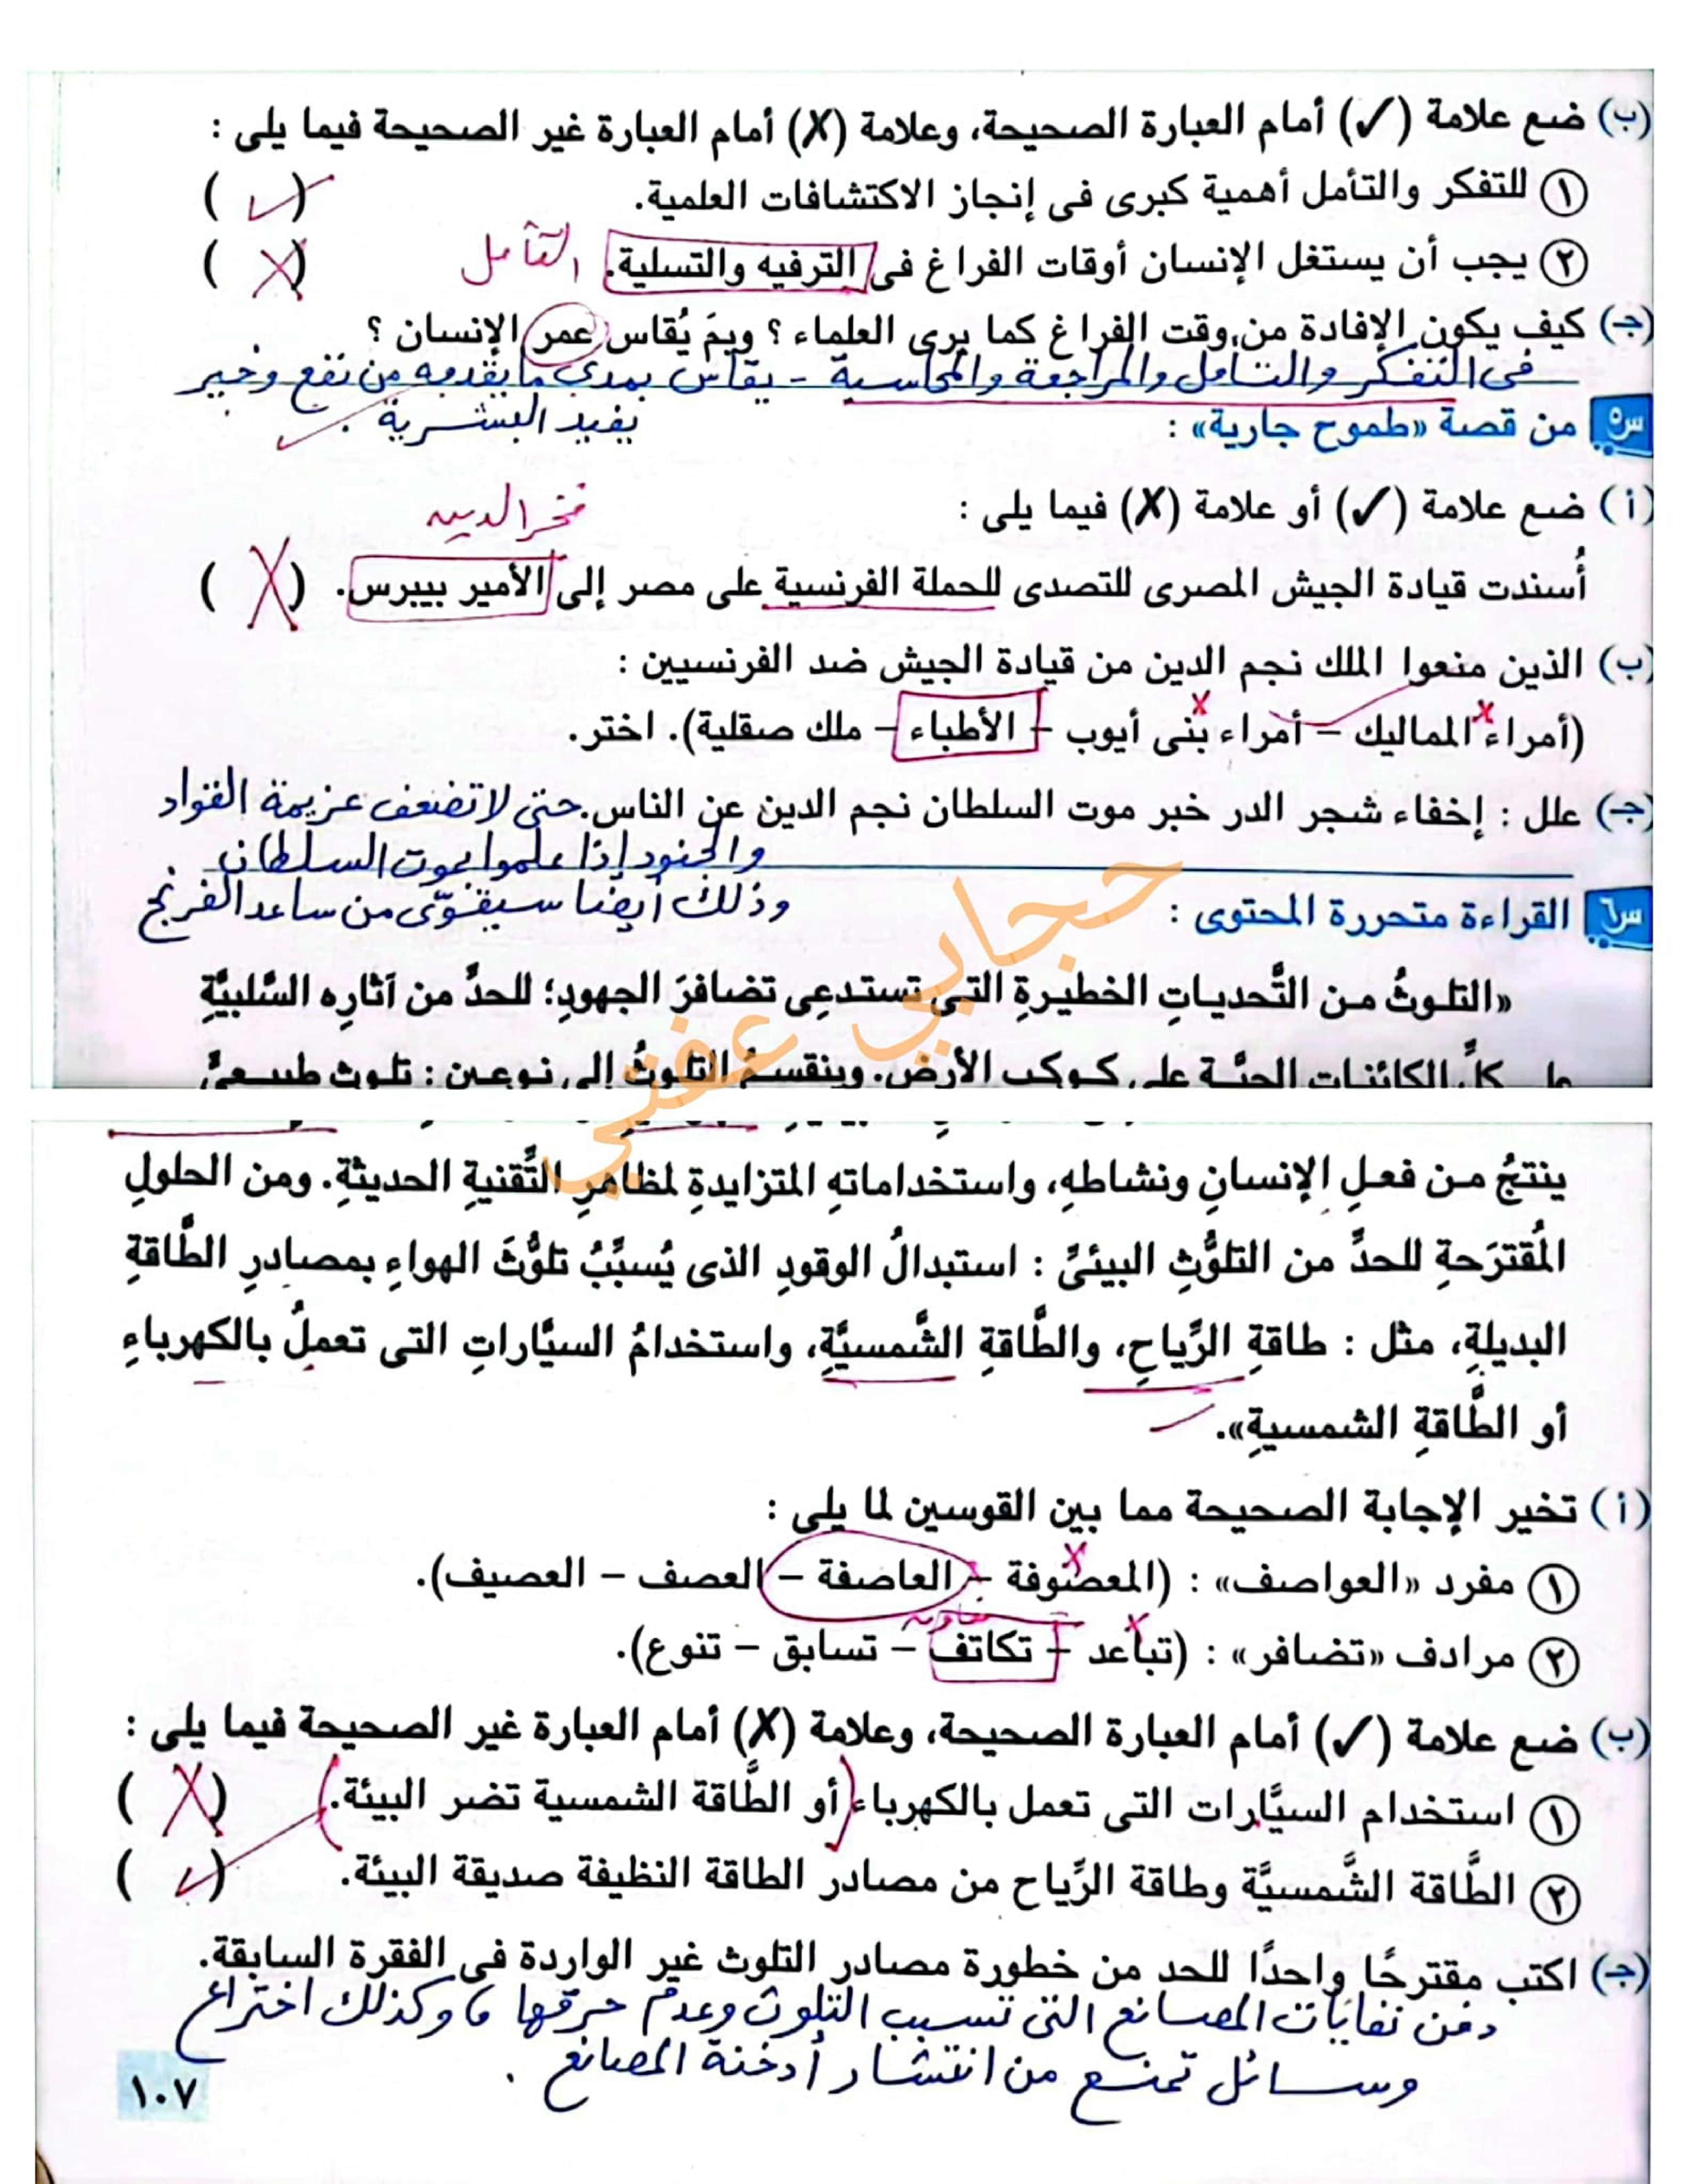 (ب) ضع علامة (✓) أمام العبارة الصحيحة، وعلامة (✗) أمام العبارة غير الصحيحة فيما يلى :
١ للتفكر والتأمل أهمية كبرى فى إنجاز الاكتشافات العلمية. ( ✓ )
٢ يجب أن يستغل الإنسان أوقات الفراغ فى الترفيه والتسلية. التأمل ( ✗ )
(جـ) كيف يكون الإفادة من وقت الفراغ كما يرى العلماء ؟ وبمَ يُقاس عمر الإنسان ؟
فى التفكر والتأمل والمراجعة والمحاسبة - يقاس بمدى ما يقدمه من نفع وخير
يفيد البشرية .
س٥ من قصة «طموح جارية» :
(أ) ضع علامة (✓) أو علامة (✗) فيما يلى :
فخر الدين
أُسندت قيادة الجيش المصرى للتصدى للحملة الفرنسية على مصر إلى الأمير بيبرس. ( ✗ )
(ب) الذين منعوا الملك نجم الدين من قيادة الجيش ضد الفرنسيين :
(أمراء المماليك – أمراء بنى أيوب – الأطباء – ملك صقلية). اختر.
(جـ) علل : إخفاء شجر الدر خبر موت السلطان نجم الدين عن الناس. حتى لا تضعف عزيمة القواد
والجنود إذا علموا بموت السلطان
وذلك أيضا سيقوّى من ساعد الفرنج
س٦ القراءة متحررة المحتوى :
«التلوثُ من التَّحدياتِ الخطيرةِ التى تستدعِى تضافرَ الجهودِ؛ للحدِّ من آثارِه السَّلبيَّةِ
على كلِّ الكائنات الحيَّة على كوكب الأرض. وينقسمُ التلوثُ إلى نوعين : تلوث طبيعىٌّ
ينتجُ من فعلِ الإنسانِ ونشاطهِ، واستخداماتهِ المتزايدةِ لمظاهرِ التَّقنيةِ الحديثةِ. ومن الحلولِ
المُقترَحةِ للحدِّ من التلوُّثِ البيئىِّ : استبدالُ الوقودِ الذى يُسبِّبُ تلوُّثَ الهواءِ بمصادرِ الطَّاقةِ
البديلةِ، مثل : طاقةِ الرِّياحِ، والطَّاقةِ الشَّمسيَّةِ، واستخدامُ السيَّاراتِ التى تعملُ بالكهرباءِ
أو الطَّاقةِ الشمسيةِ».
(أ) تخير الإجابة الصحيحة مما بين القوسين لما يلى :
١ مفرد «العواصف» : (المعصوفة – العاصفة – العصف – العصيف).
٢ مرادف «تضافر» : (تباعد – تكاتف – تسابق – تنوع).
(ب) ضع علامة (✓) أمام العبارة الصحيحة، وعلامة (✗) أمام العبارة غير الصحيحة فيما يلى :
١ استخدام السيَّارات التى تعمل بالكهرباء أو الطَّاقة الشمسية تضر البيئة. ( ✗ )
٢ الطَّاقة الشَّمسيَّة وطاقة الرِّياح من مصادر الطاقة النظيفة صديقة البيئة. ( ✓ )
(جـ) اكتب مقترحًا واحدًا للحد من خطورة مصادر التلوث غير الواردة فى الفقرة السابقة.
دفن نفايات المصانع التى تسبب التلوث وعدم حرقها ، وكذلك اختراع
وسائل تمنع من انتشار أدخنة المصانع .
١٠٧
حجابي عفني